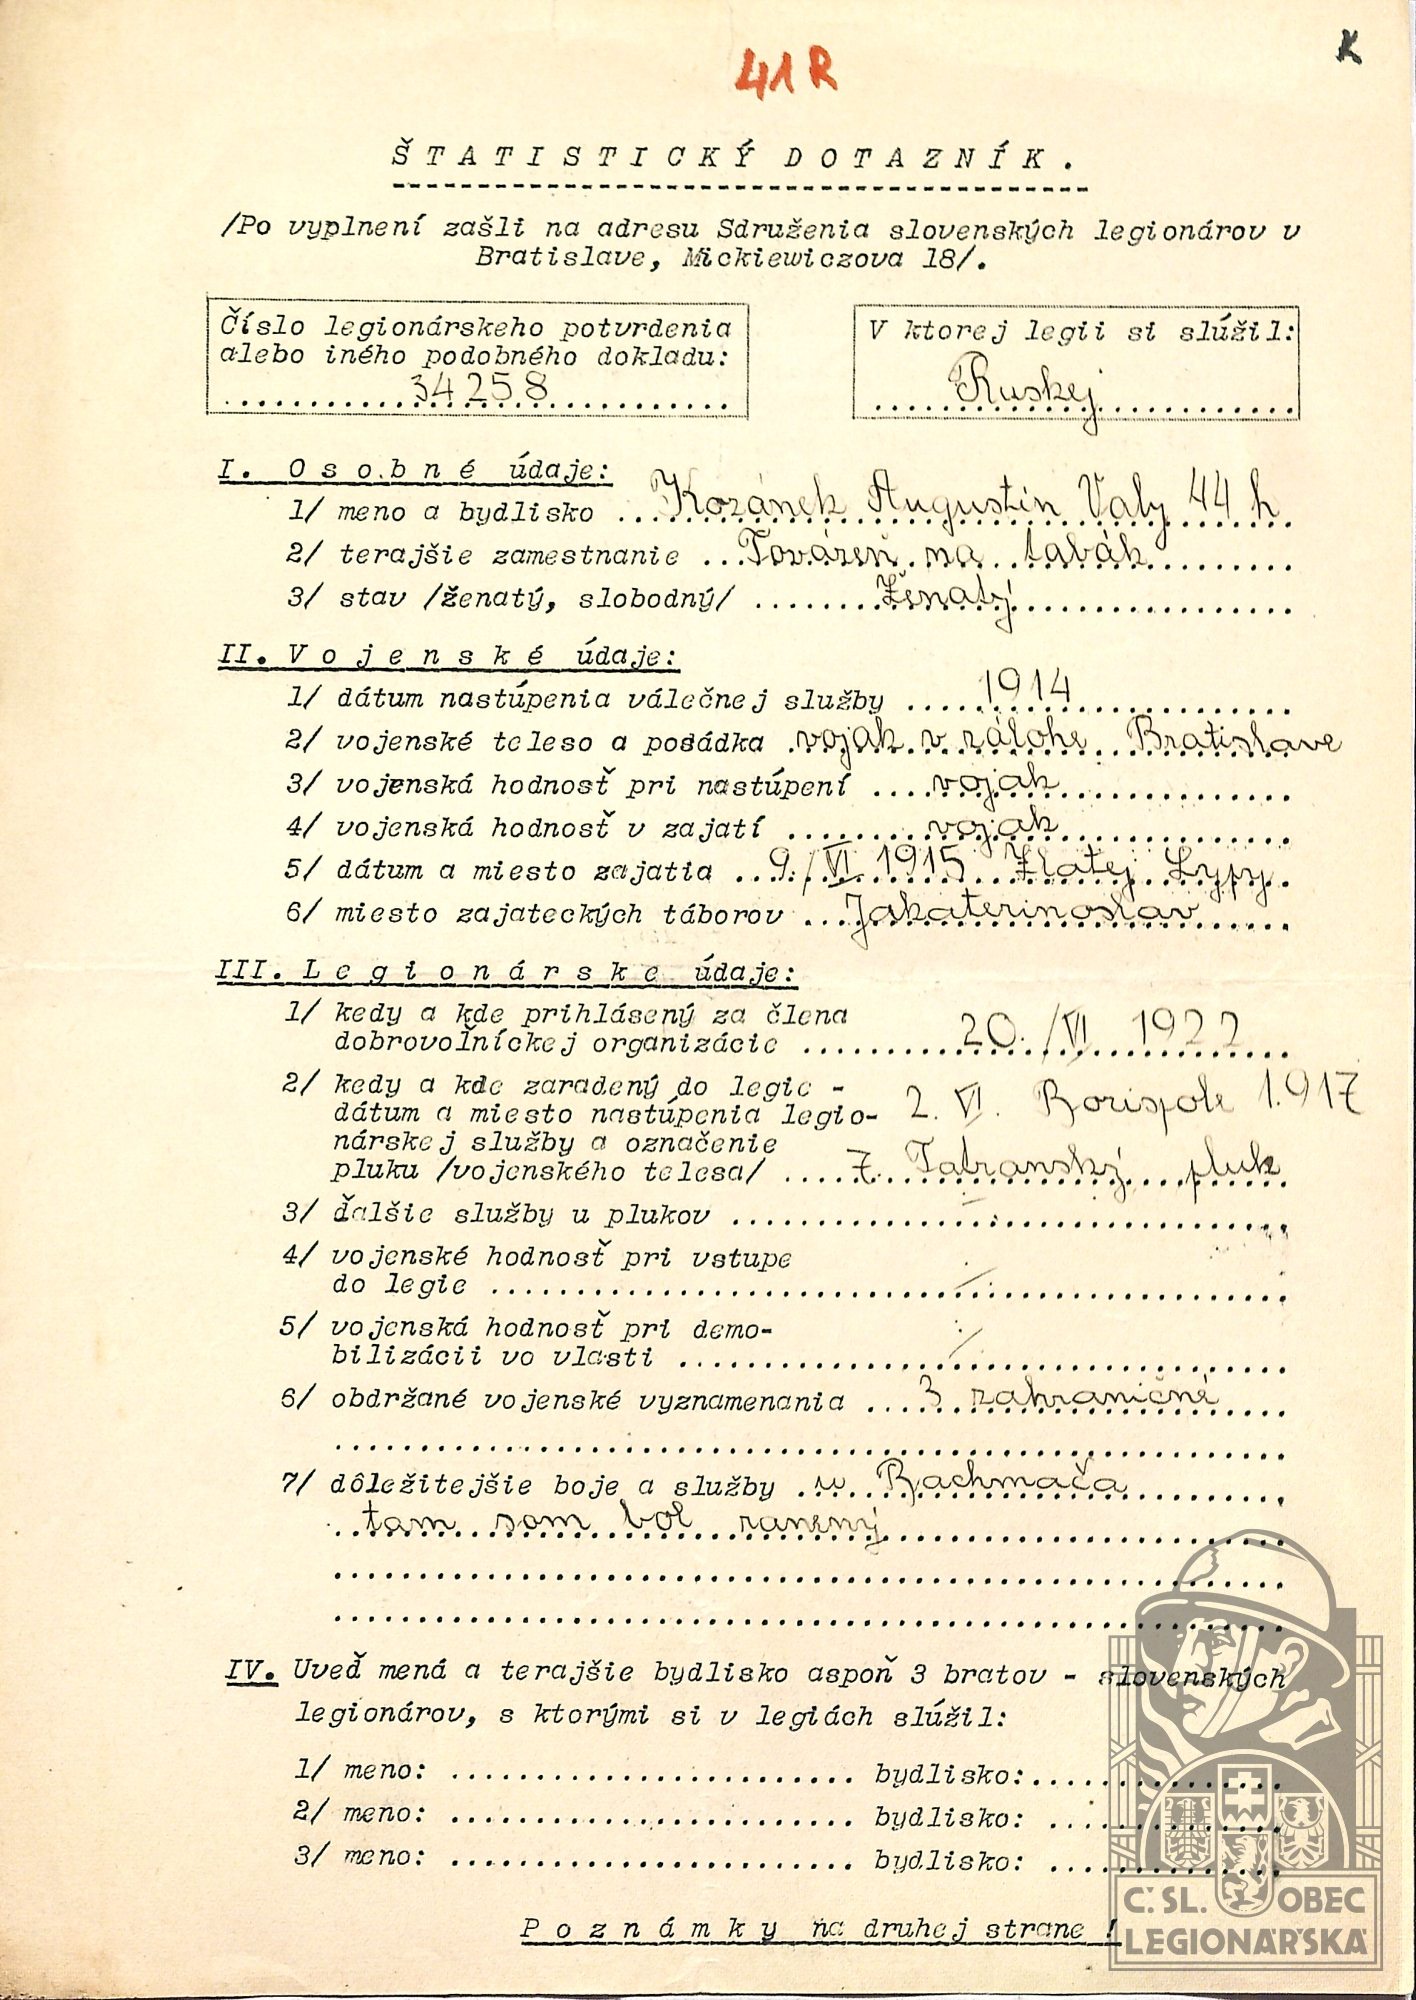 41 R
K
ŠTATISTICKÝ DOTAZNÍK.
/Po vyplnení zašli na adresu Sdruženia slovenských legionárov v
Bratislave, Mickiewiczova 18/.
Číslo legionárskeho potvrdenia
alebo iného podobného dokladu:
34258
V ktorej legii si slúžil:
Ruskej
I. Osobné údaje:
1/ meno a bydlisko ... Kozánek Augustin Valy 44 h
2/ terajšie zamestnanie ... Továreň na tabák
3/ stav /ženatý, slobodný/ ... Ženatý
II. Vojenské údaje:
1/ dátum nastúpenia válečnej služby ... 1914
2/ vojenské teleso a posádka . vojak v zálohe Bratislave
3/ vojenská hodnosť pri nastúpení ... vojak
4/ vojenská hodnosť v zajatí ... vojak
5/ dátum a miesto zajatia ... 9./VI 1915 Zlatej Lypy
6/ miesto zajateckých táborov ... Jakaterinoslav
III. Legionárske údaje:
1/ kedy a kde prihlásený za člena
dobrovoľníckej organizácie ... 20./VI 1922
2/ kedy a kde zaradený do legie -
dátum a miesto nastúpenia legio- 2. VI. Borispole 1.917
nárskej služby a označenie
pluku /vojenského telesa/ ... 7. Tatranský pluk
3/ ďalšie služby u plukov ... /
4/ vojenské hodnosť pri vstupe
do legie ... /
5/ vojenská hodnosť pri demo-
bilizácii vo vlasti ... /
6/ obdržané vojenské vyznamenania ... 3 zahraničné
7/ dôležitejšie boje a služby . u Bachmača
tam som bol ranený
IV. Uveď mená a terajšie bydlisko aspoň 3 bratov - slovenských
legionárov, s ktorými si v legiách slúžil:
1/ meno: ... bydlisko: ...
2/ meno: ... bydlisko: ...
3/ meno: ... bydlisko: ...
Poznámky na druhej strane !
Č. SL. OBEC
LEGIONÁŘSKÁ